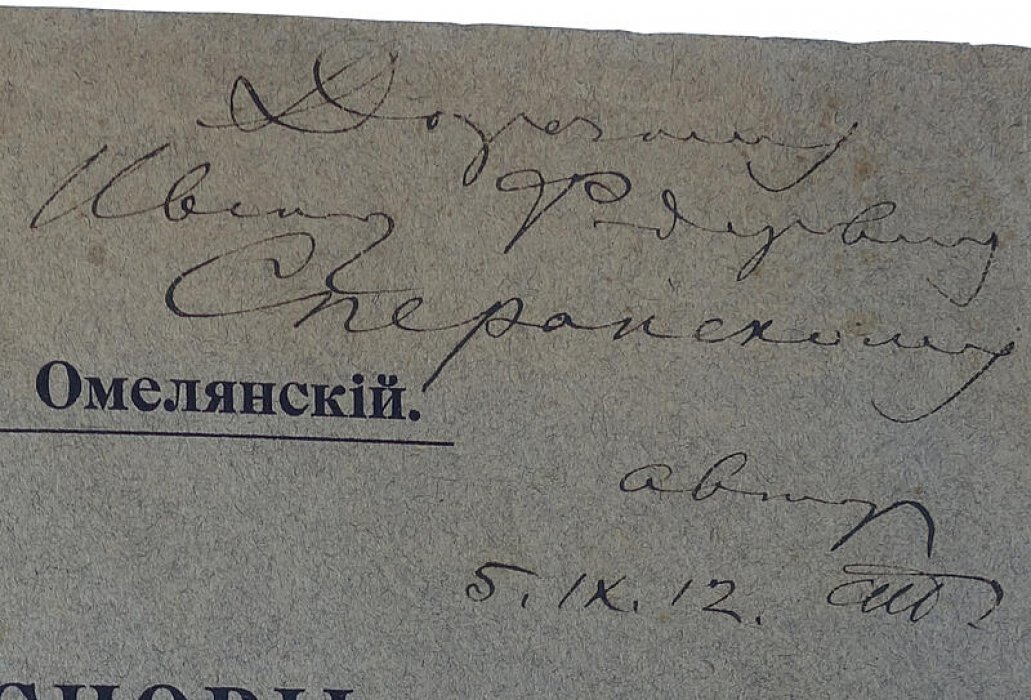 Дорогому
Ивану Федоровичу
Сперанскому
Омелянскій.
автор
5. IX. 12.